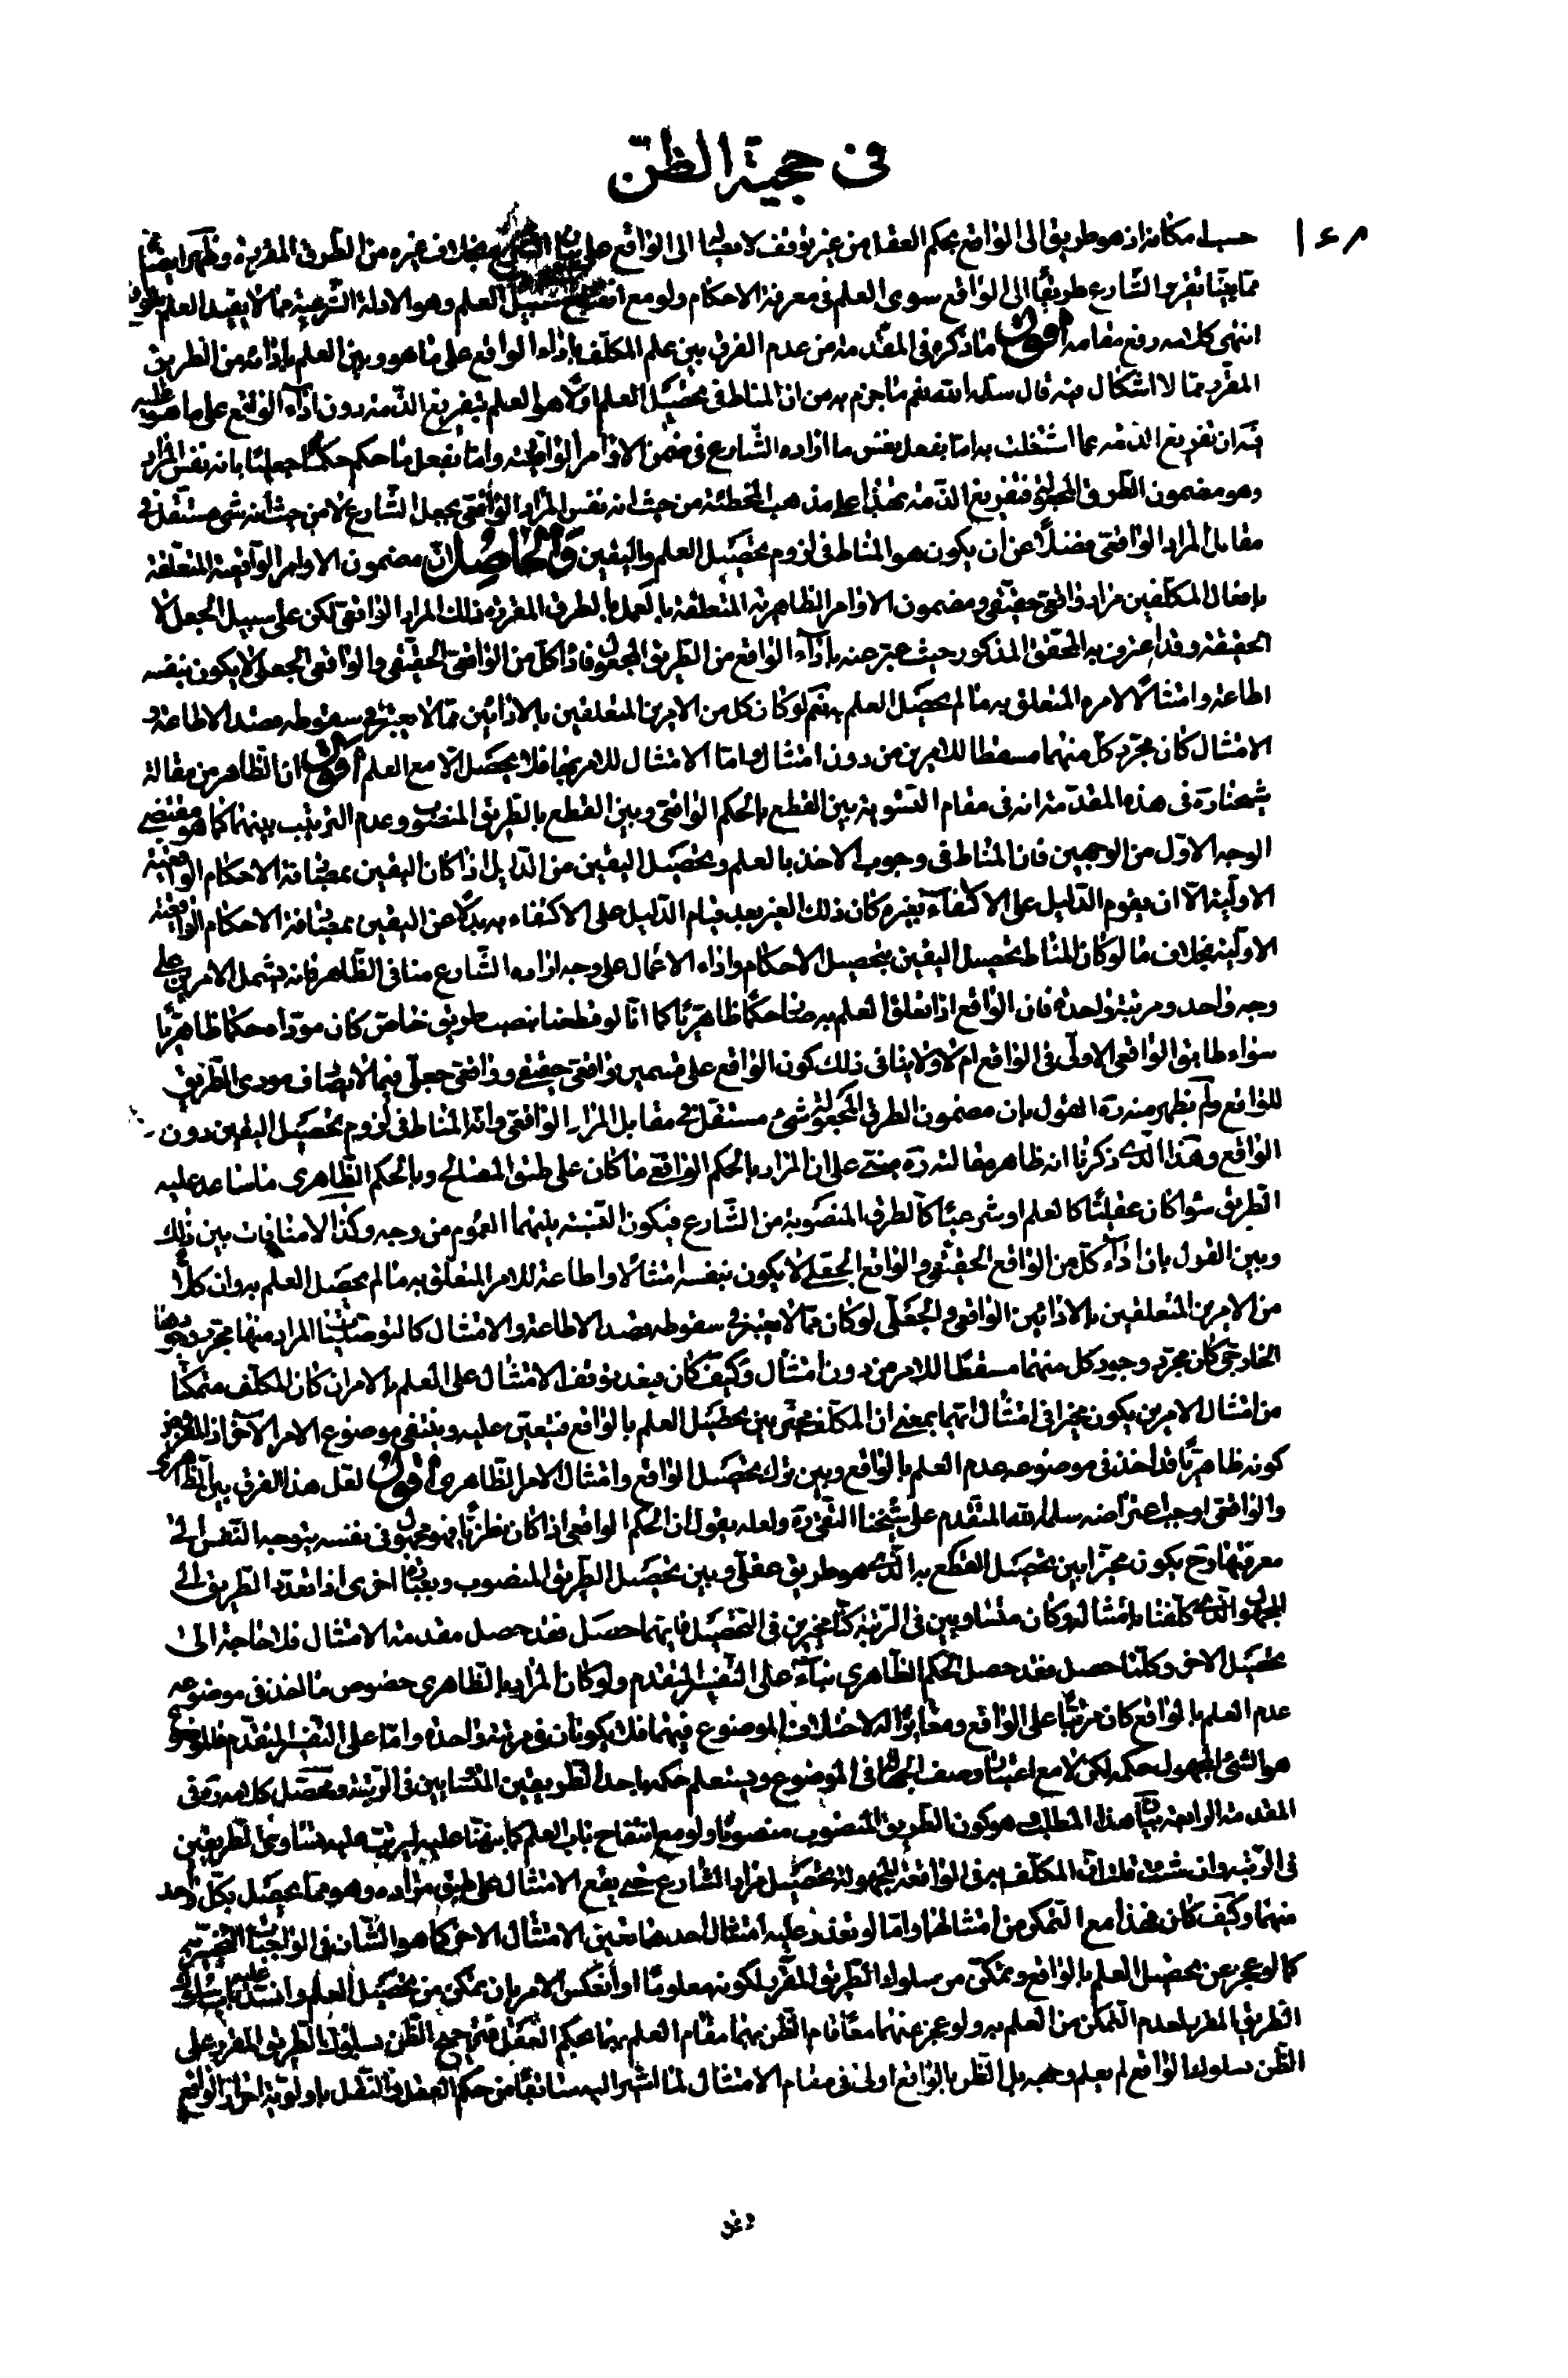 في حجية الظنّ
١٤٨
حسب مكانه اذ هو طريق الى الواقع بحكم العقل من غير توقف لايصاله الى الواقع على بيان الشرع بخلاف غيره من الطرق المقررة وظهر ايضا
مما بيّنا تقرير الشارع طريقًا الى الواقع سوى العلم في معرفة الاحكام ولو مع انفتاح سبيل العلم وهو الادلة الشرعية مما لا يفيد العلم بالواقع
انتهى كلامه رفع مقامه اقول ما ذكره في المقدمة من عدم الفرق بين علم المكلّف باداء الواقع على ما هو وبين العلم بادائه من الطريق
المقرّر مما لا اشكال فيه قال سلمه الله نعم ما جزم به من ان المناط في تحصيل العلم اولًا هو العلم بتفريغ الذمة دون اداء الواقع على ما هو عليه
فيه ان تفريغ الذمة عما اشتغلت به امّا بفعل نفس ما اراده الشارع في ضمن الاوامر الواقعية وامّا بفعل ما حكم حكمًا جعليًا بانه نفس المراد
وهو مضمون الطرق المجعولة فتفريغ الذمة بهذا على مذهب المخطئة من حيث انه نفس المراد الواقعي بجعل الشارع لا من حيث انه شيء مستقل في
مقابل المراد الواقعي فضلًا عن ان يكون هو المناط في لزوم تحصيل العلم واليقين والحاصل انّ مضمون الاوامر الواقعية المتعلقة
بافعال المكلّفين مراد واقعي حقيقي ومضمون الاوامر الظاهرية المتعلقة بالعمل بالطرق المقررة ذلك المراد الواقعي لكن على سبيل الجعل لا
الحقيقة وقد اعترف به المحقّق المذكور حيث عبّر عنه باداء الواقع من الطريق المجعول فاذا كلّ من الواقعي الحقيقي والواقعي الجعلي لا يكون بنفسه
اطاعة وامتثالًا للامر المتعلق به ما لم يحصل العلم به نعم لو كان كل من الامرين المتعلقين بالادائين مما لا يعتبر في سقوطه قصد الاطاعة و
الامتثال كان مجرّد كلّ منهما مسقطا للامرين من دون امتثال وامّا الامتثال للامر بهما فلا يحصل الا مع العلم اقول ان الظاهر من مقالة
شيخنا ره في هذه المقدّمة انه في مقام التسوية بين القطع بالحكم الواقعي وبين القطع بالطريق المنصوب وعدم الترتيب بينهما كما هو مقتضى
الوجه الاوّل من الوجهين فان المناط في وجوب الاخذ بالعلم وتحصيل اليقين من الدليل اذا كان اليقين بمصادفة الاحكام الواقعية
الاولية الا ان يقوم الدليل على الاكتفاء بغيره كان ذلك الغير بعد قيام الدليل على الاكتفاء به بدلًا عن اليقين بمصادفة الاحكام الواقعية
الاولية بخلاف ما لو كان المناط تحصيل اليقين بتحصيل الاحكام واداء الاعمال على وجه اراده الشارع منا في الظاهر فانه يشمل الامرين على
وجه واحد ومرتبة واحدة فان الواقع اذا تعلق العلم به صار حكمًا ظاهريًا كما انّا لو قطعنا بنصب طريق خاصّ كان مؤدّاه حكما ظاهريًا
سواء طابق الواقعي الاولي في الواقع ام لا ولا ينافي ذلك كون الواقع على قسمين واقعي حقيقي وواقعي جعلي فيما لا يصادف مؤدى الطريق
للواقع ولم يظهر منه ره القول بان مضمون الطرق المجعولة شيء مستقل في مقابل المراد الواقعي وانه المناط في لزوم تحصيل اليقين دون
الواقع وهذا الذي ذكرنا انه ظاهر مقالته ره مبني على ان المراد بالحكم الواقعي ما كان على طبق المصالح وبالحكم الظاهري ما ساعد عليه
الطريق سواء كان عقليًا كالعلم او شرعيًا كالطرق المنصوبة من الشارع فيكون النسبة بينهما العموم من وجه وكذا لا منافات بين ذلك
وبين القول بان اداء كلّ من الواقع الحقيقي والواقع الجعلي لا يكون بنفسه امتثالًا واطاعة للامر المتعلق به ما لم يحصل العلم به وان كلًا
من الامرين المتعلقين بالادائين الواقعي والجعلي لو كان مما لا يعتبر في سقوطه قصد الاطاعة والامتثال كالتوصليات المراد منها مجرّد وجودها
الخارجي كان مجرّد وجود كل منهما مسقطًا للامر من دون امتثال وكيف كان فبعد توقف الامتثال على العلم بالامر ان كان المكلّف متمكنًا
من امتثال الامرين يكون مخيرا في امتثال ايهما بمعنى ان المكلف مخيّر بين تحصيل العلم بالواقع فيتعين عليه وينتفي موضوع الامر الآخر اذ المفروض
كونه ظاهريًا قد اخذ في موضوعه عدم العلم بالواقع وبين ترك تحصيل الواقع وامتثال الامر الظاهري اقول لعل هذا الفرق بين الظاهري
والواقعي اوجب اعتراضه سلمه الله المتقدم على شيخنا التقي ره ولعله يقول ان الحكم الواقعي اذا كان نظريًا فهو مجهول في نفسه يتوجه النفس الى
معرفتها وح يكون مخيّرا بين تحصيل القطع به الذي هو طريق عقلي وبين تحصيل الطريق المنصوب وبعبارة اخرى اذا تعدّد الطريق الى
المجهول الذي كلّفنا بامتثاله وكان متساويين في الرتبة كنّا مخيرين في التحصيل فايهما حصل فقد حصل مقدمة الامتثال فلا حاجة الى
تحصيل الاخر وكلّما حصل فقد حصل الحكم الظاهري بناءً على التفسير المتقدم ولو كان المراد بالظاهري خصوص ما اخذ في موضوعه
عدم العلم بالواقع كان مرتبًا على الواقع ومغايرًا له لاختلاف الموضوع فيهما فلا يكونان في مرتبة واحدة وامّا على التفسير المتقدم فالموضوع
هو الشيء المجهول حكمه لكن لا مع اعتبار وصف الجهالة في الموضوع ويستعلم حكمه باحد الطريقين المتساويين في الرتبة ومحصّل كلامه ره في
المقدمة الرابعة بيان هذا المطلب هو كون الطريق المنصوب منصوبًا ولو مع انفتاح باب العلم كما نبّهنا عليه ليرتب عليه تساوي الطريقين
في الرتبة وان شئت قلت انّ المكلّف به في الواقعة المجهولة تحصيل مراد الشارع حتى يقع الامتثال على طبق مراده وهو مما يحصل بكلّ واحد
منهما وكيف كان فهذا مع التمكن من امتثالهما وامّا لو تعذّر عليه امتثال احدهما تعيّن الامتثال الاخر كما هو الشأن في الواجبات التخييرية
كما لو عجز عن تحصيل العلم بالواقع وتمكّن من سلوك الطريق المقرّر لكونه معلومًا او انعكس الامر بان تمكن من تحصيل العلم وانسدّ عليه باب سلوك
الطريق المقرر لعدم التمكن من العلم به ولو عجز عنهما معًا قام الظن بهما مقام العلم بهما بحكم العقل فترجيح الظن بسلوك الطريق المقرر على
الظن بسلوك الواقع لم يعلم وجهه بل الظن بالواقع اولى في مقام الامتثال لما اشير اليه سابقًا من حكم العقل والنقل باولوية احراز الواقع